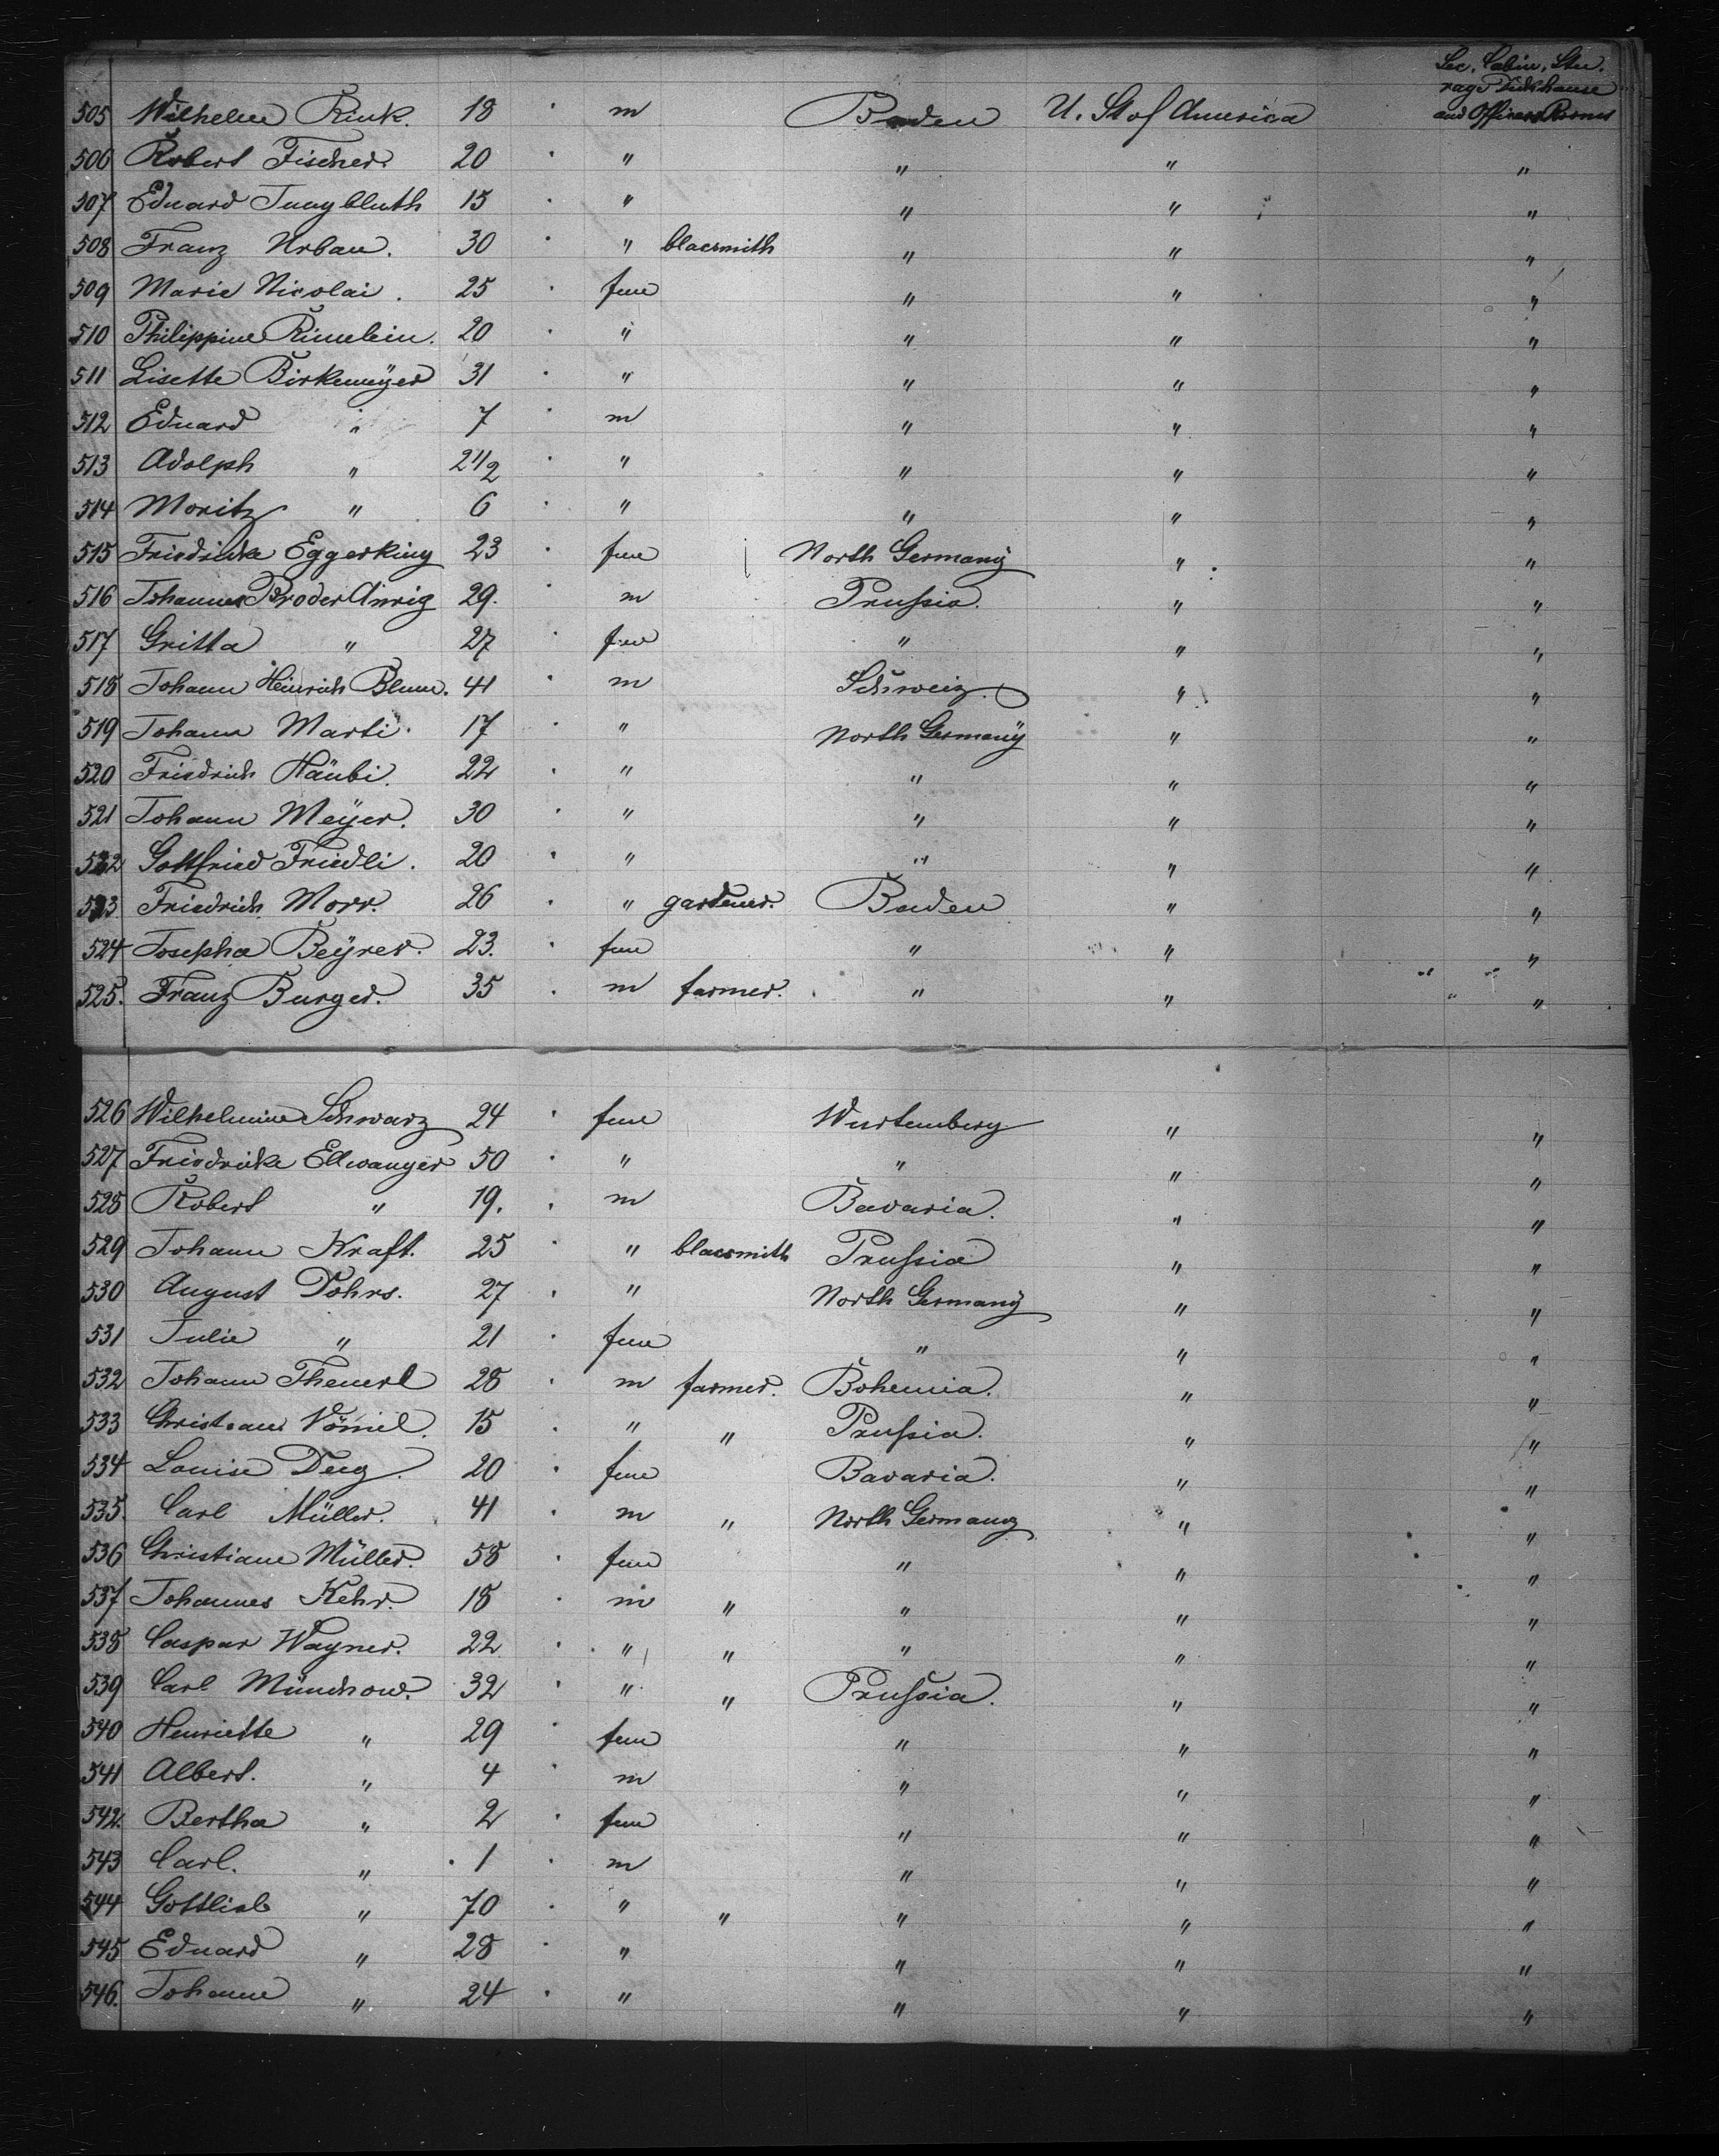 Sec. Cabin, Stee.
rage Deckhause
505 Wilhelm Rink. 18 m Baden U. St of America and Officers Rooms
506 Robert Fischer. 20 " " " "
507 Eduard Jungbluth 15 " " " "
508 Franz Urban. 30 " blacsmith " " "
509 Marie Nicolai. 25 fem " " "
510 Philippine Rimlein. 20 " " " "
511 Lisette Birkemeÿer 31 " " " "
512 Eduard " 7 m " " "
513 Adolph " 2 1/2 " " " "
514 Moritz " 6 " " " "
515 Friedricke Eggerking 23 fem North Germanÿ " "
516 Johannes Broder 29. m Prussia. " "
517 Gritta " 27 fem " " "
518 Johann Heinrich Blum. 41 m Schweiz. " "
519 Johann Marti. 17 " North Germanÿ " "
520 Friedrich Häubi. 22 " " " "
521 Johann Meÿer. 30 " " " "
522 Gottfried Friedli. 20 " " " "
523 Friedrich Morr. 26 " gardener. Baden " "
524 Josepha Beÿrer. 23. fem " " "
525. Franz Burger. 35 m farmer. " " "
526 Wilhelmine Schwarz 24 fem Wurtemberg " "
527 Friedricke Ellwanger 50 " " " "
528 Robert " 19. m Bavaria. " "
529 Johann Kraft. 25 " blacsmith Prussia " "
530 August Dohrs. 27 " North Germanÿ " "
531 Julie " 21 fem " " "
532 Johann Theuerl 28 m farmer. Bohemia. " "
533 Christian Vömel. 15 " " Prussia. " "
534 Louise Deeg. 20 fem Bavaria. " "
535. Carl Müller. 41 m " North Germany " "
536 Christiane Müller. 58 fem " " "
537 Johannes Kehr. 18 m " " " "
538 Caspar Wagner. 22 " " " " "
539 Carl Münchow. 32 " " Prussia. " "
540 Henriette " 29 fem " " "
541 Albert. " 4 m " " "
542. Bertha " 2 fem " " "
543 Carl. " 1 m " " "
544 Gottlieb " 70 " " " " "
545 Eduard " 28 " " " "
546. Johann " 24 " " " "